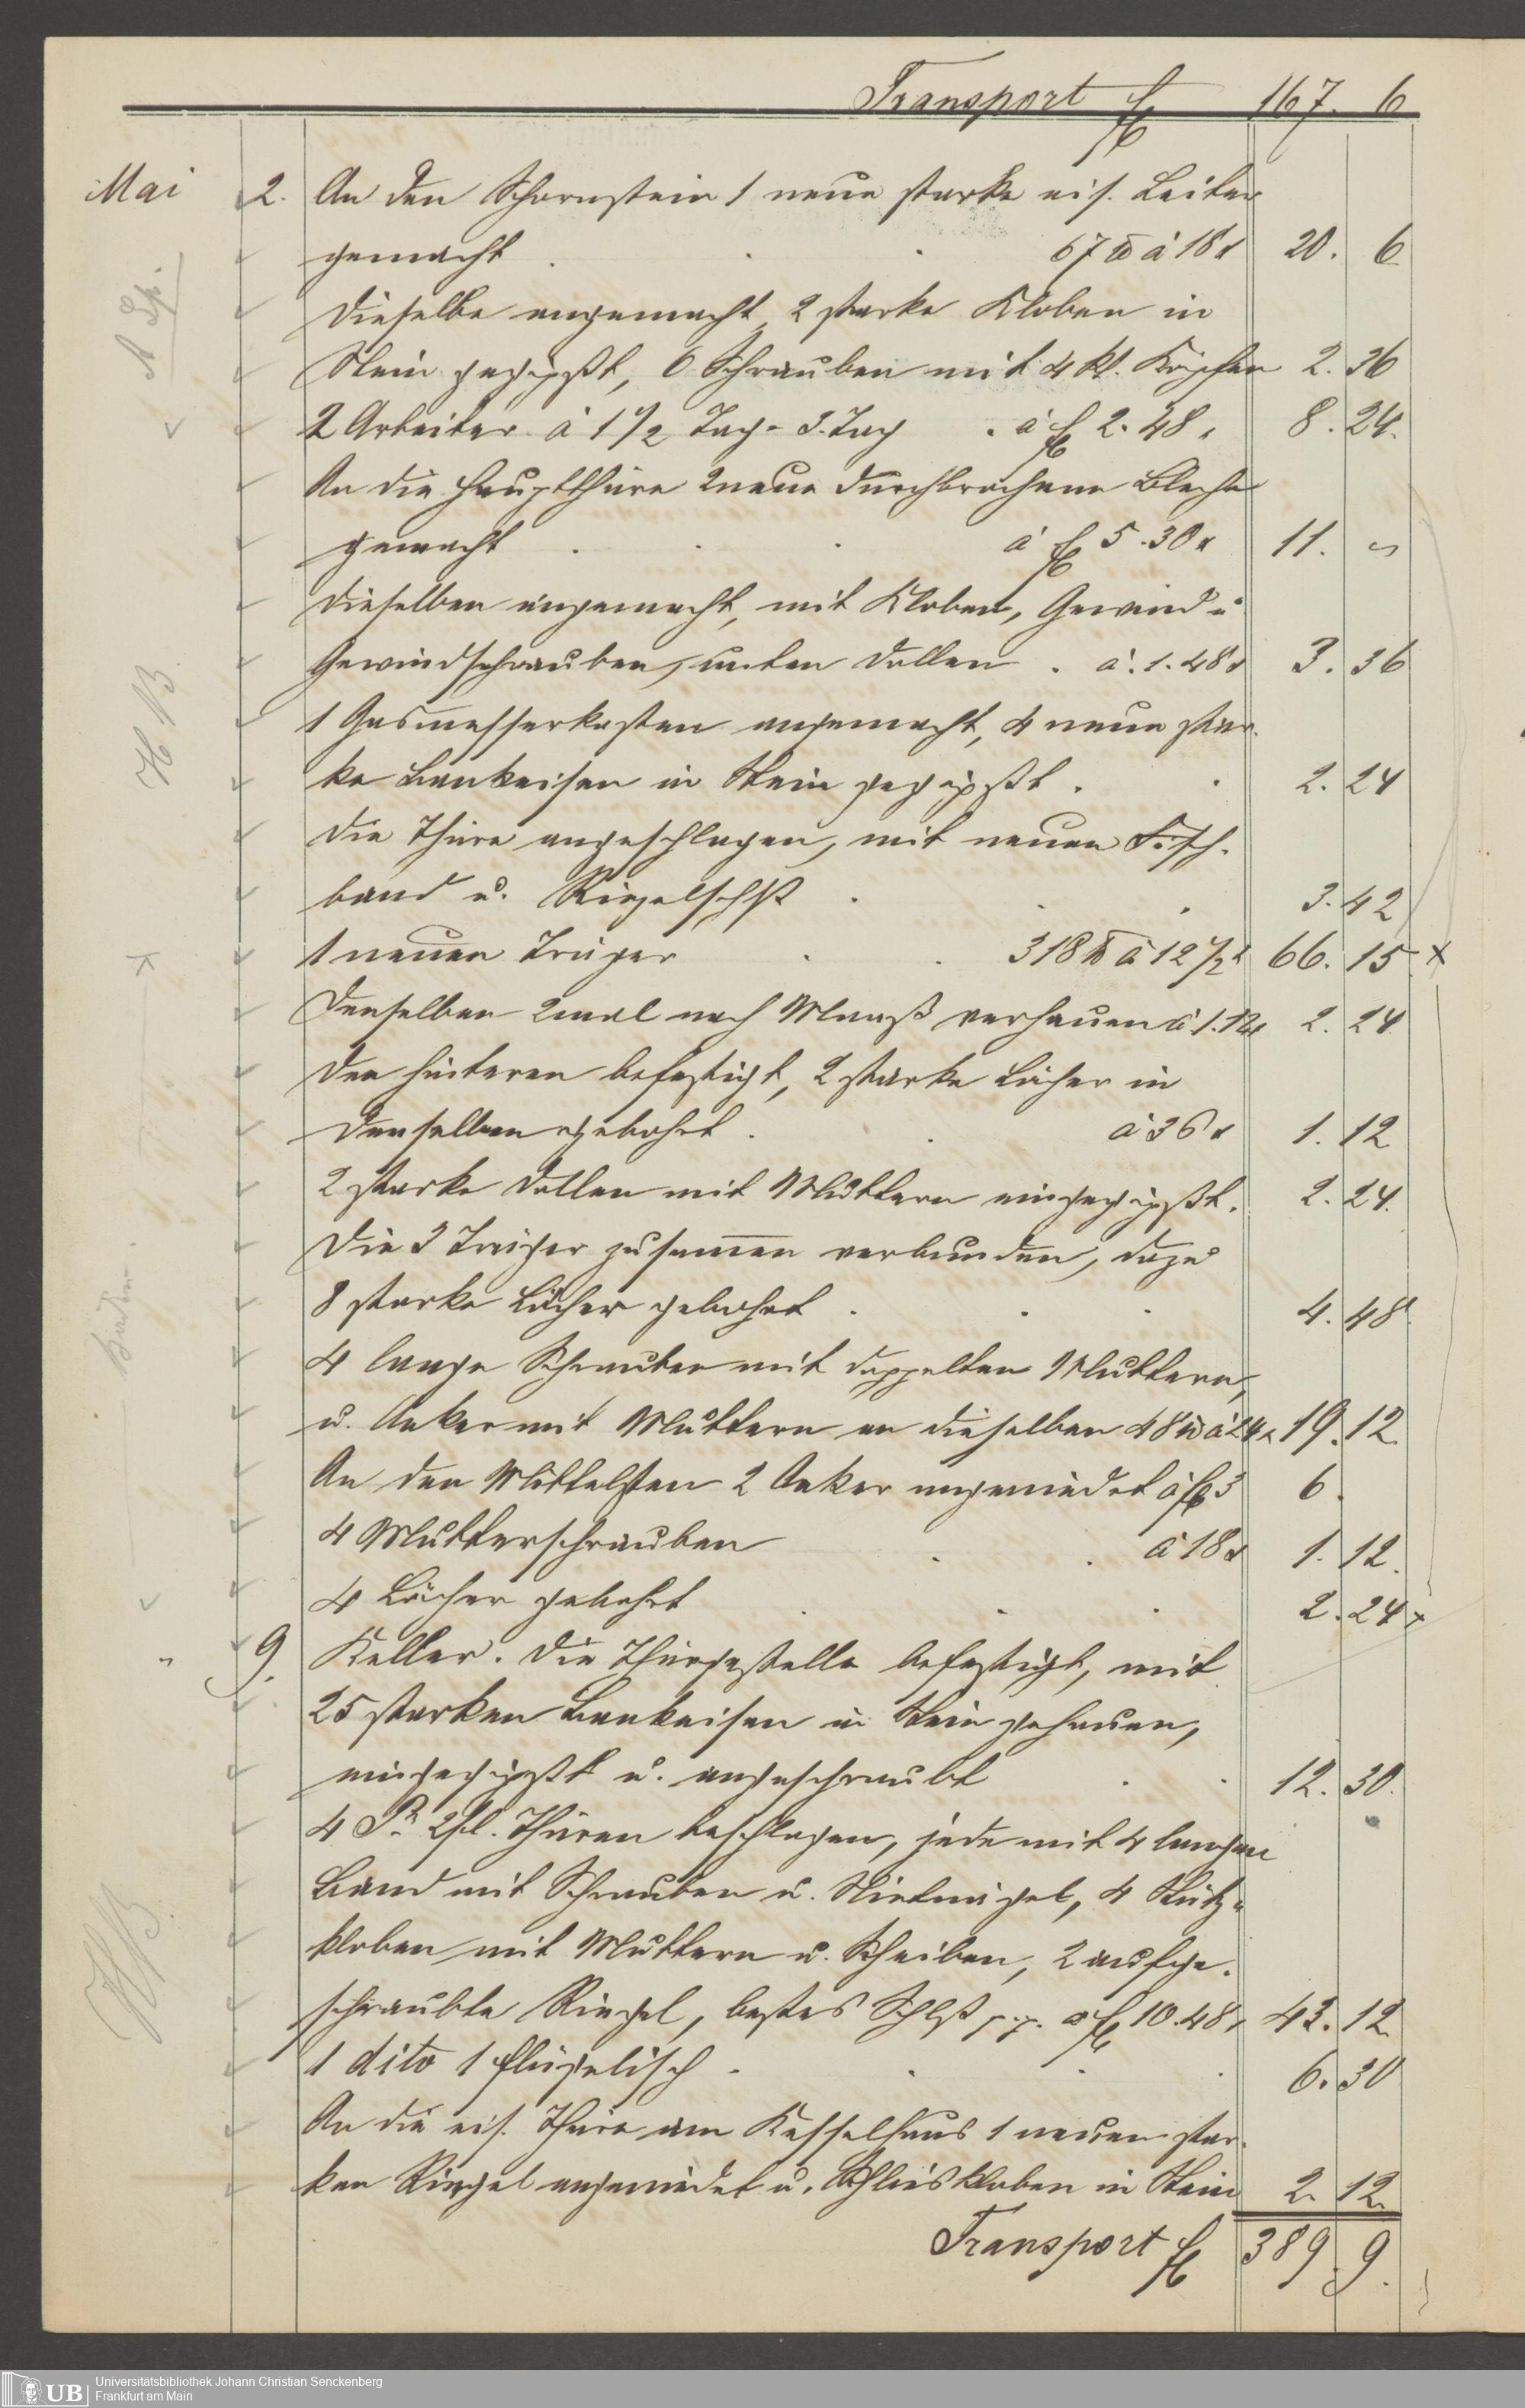 Transport fl 167. 6
Mai 2. An den Schornstein 1 neue starke eis. Leiter
gemacht . . . 67 ℔ à 18 x 20. 6
Dieselbe angemacht, 2 starke Kloben in
Stein gegipßt, 6 Schrauben mit 4 kt. Köpfen 2. 36
2 Arbeiter à 1 1/2 Tag = 3. Tag . à fl 2. 48 x 8. 24.
An die Hauptthüre 2 neue durchbrochene Bleche
gemacht . . . à fl 5. 30 x 11. "
Dieselben angemacht, mit Kloben, Gewind u.
Gewindschrauben, unten Dollen . à. 1. 48 x 3. 36
1 Gasmesserkasten angemacht, 4 neue star-
ke Bankeisen in Stein gegipßt . . 2. 24
Die Thüre angeschlagen, mit neuen Fisch-
band u. Riegelschlß . . . 3. 42
1 neuen Träger . . 318 ℔ à 12 1/2 x 66. 15. x
Denselben 2 mal nach Maaß verhauen à 1. 12 x 2. 24
Den hinteren befestigt, 2 starke Löcher in
denselben gebohrt . . à 36 x 1. 12
2 starke Dollen mit Muttern eingegipßt. 2. 24.
Die 3 Träger zusammen verbunden, dazu
8 starke Löcher gebohrt . . . 4. 48
4 lange Schrauben mit doppelten Muttern,
u. Anker mit Muttern an dieselben 48 ℔ à 24 x 19. 12.
An den Mittelsten 2 Anker angenietet à fl 3 6.
4 Mutterschrauben . . à 18 x 1. 12.
4 Löcher gebohrt . . . 2. 24 x
9. Keller. Die Thürgestelle befestigt, mit
25 starken Bankeisen in Stein gehauen,
eingegipßt u. angeschraubt . . 12. 30.
4 St. 2fl. Thüren beschlagen, jede mit 4 langen
Band mit Schrauben u. Nietnägel, 4 Stütz-
kloben mit Muttern u. Scheiben, 2 aufge-
schraubte Riegel, bestes Schlß p.p. à fl 10. 48 x 43. 12
1 dito 1 flügelisch . . . . 6. 30
An die eis. Thüre am Kesselhaus 1 neuen star-
ken Riegel angenietet u. Schlieskloben in Stein 2. 12.
Transport fl 389. 9.
H B.
HB.
UB Universitätsbibliothek Johann Christian Senckenberg
Frankfurt am Main